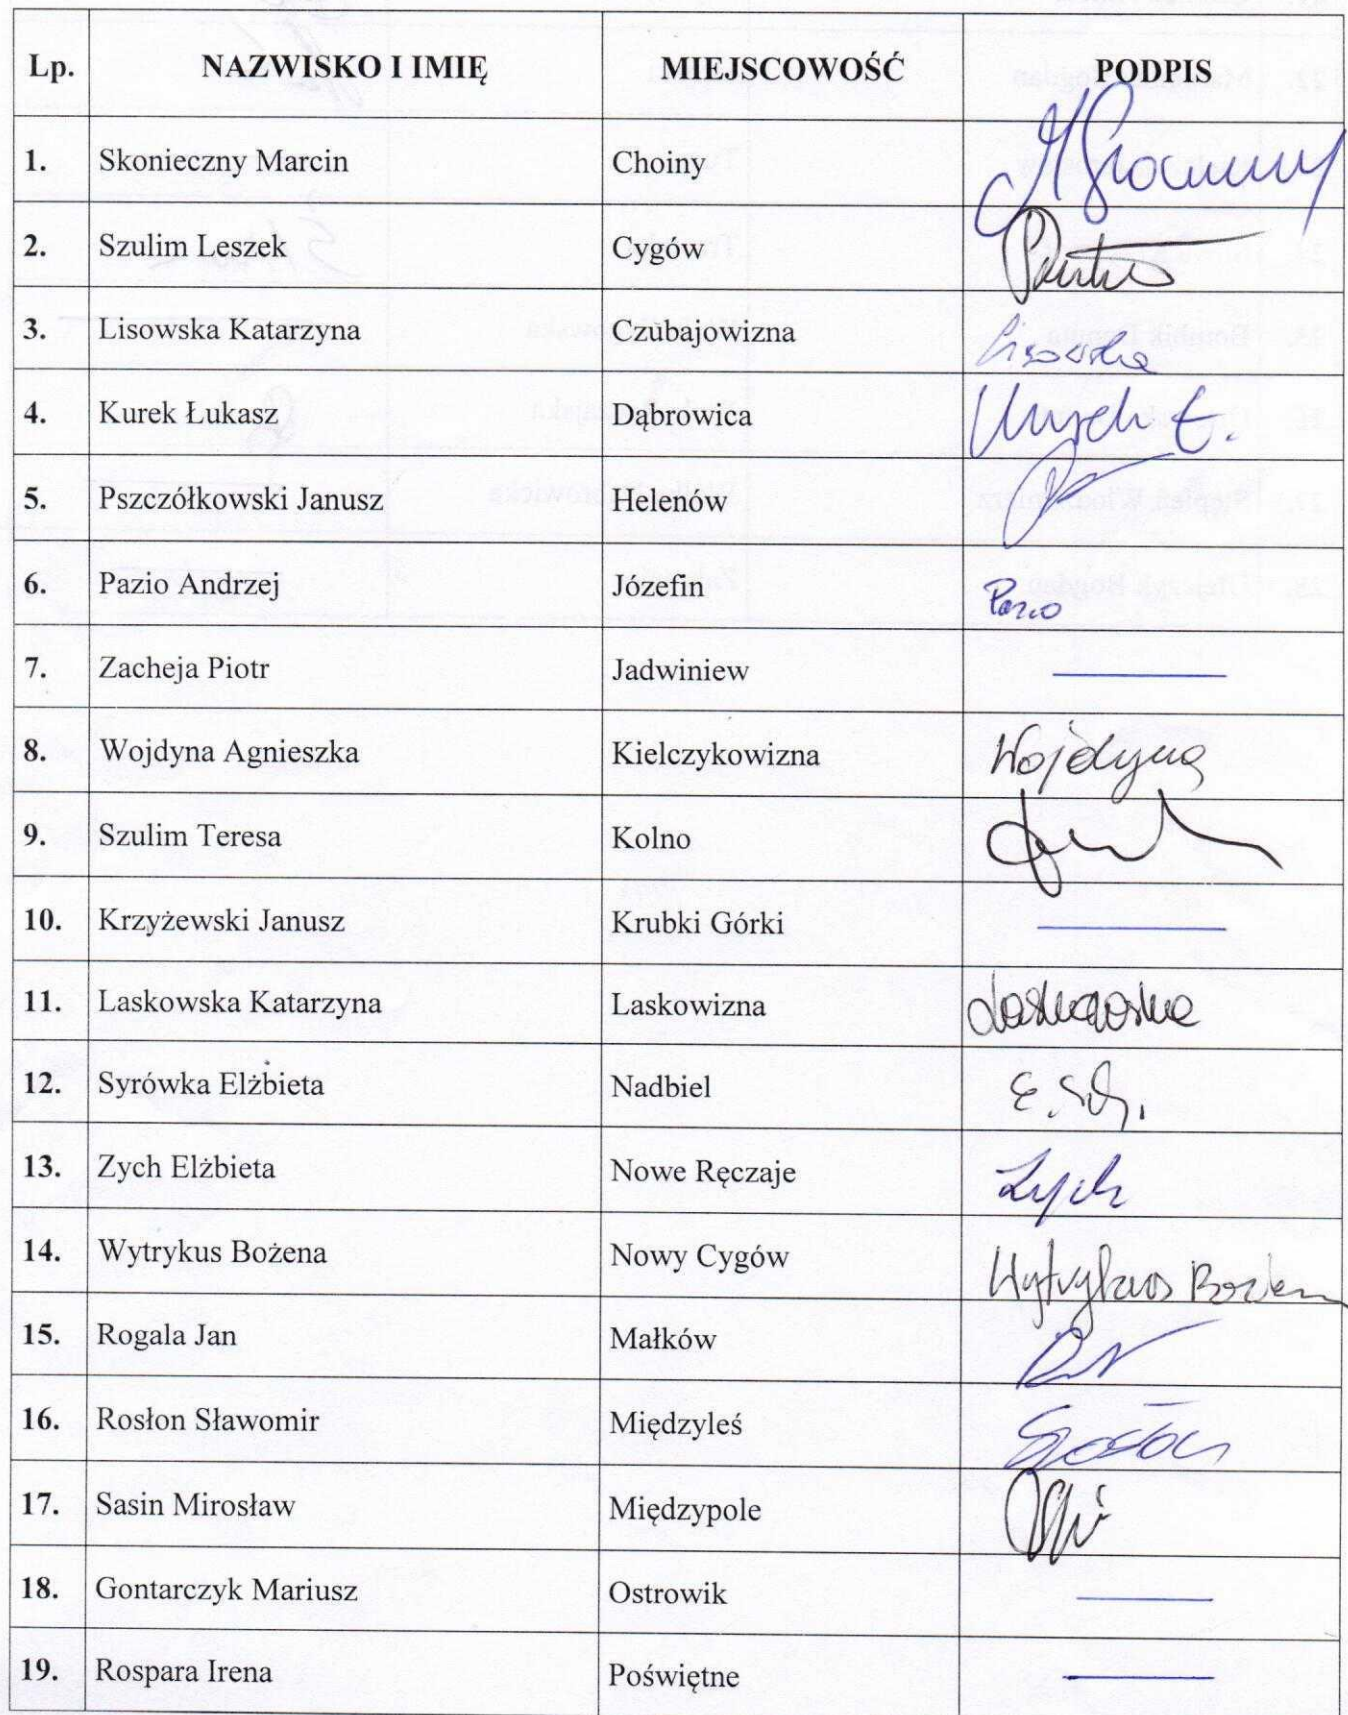 Lp. NAZWISKO I IMIĘ MIEJSCOWOŚĆ PODPIS
1. Skonieczny Marcin Choiny
2. Szulim Leszek Cygów
3. Lisowska Katarzyna Czubajowizna Lisowska
4. Kurek Łukasz Dąbrowica
5. Pszczółkowski Janusz Helenów
6. Pazio Andrzej Józefin Pazio
7. Zacheja Piotr Jadwiniew
8. Wojdyna Agnieszka Kielczykowizna Wojdyna
9. Szulim Teresa Kolno
10. Krzyżewski Janusz Krubki Górki
11. Laskowska Katarzyna Laskowizna Laskowska
12. Syrówka Elżbieta Nadbiel
13. Zych Elżbieta Nowe Ręczaje Zych
14. Wytrykus Bożena Nowy Cygów Wytrykus Bożena
15. Rogala Jan Małków
16. Rosłon Sławomir Międzyleś
17. Sasin Mirosław Międzypole
18. Gontarczyk Mariusz Ostrowik
19. Rospara Irena Poświętne